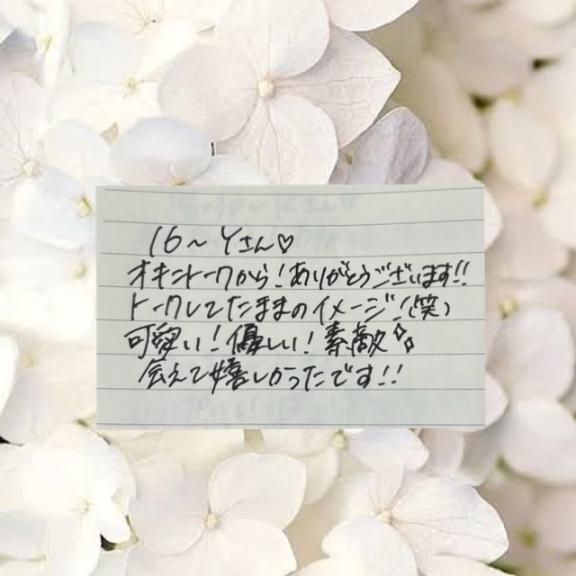 16〜Yさん♡
オキニトークから!ありがとうございます!!
トークしてたままのイメージ!(笑)
可愛い!優しい!素敵✨
会えて嬉しかったです!!